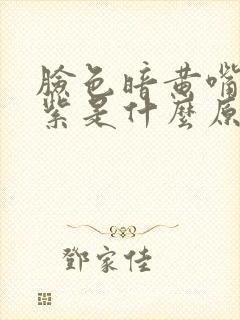 臉色暗黃嘴
紫是什麼原
鄧家佳